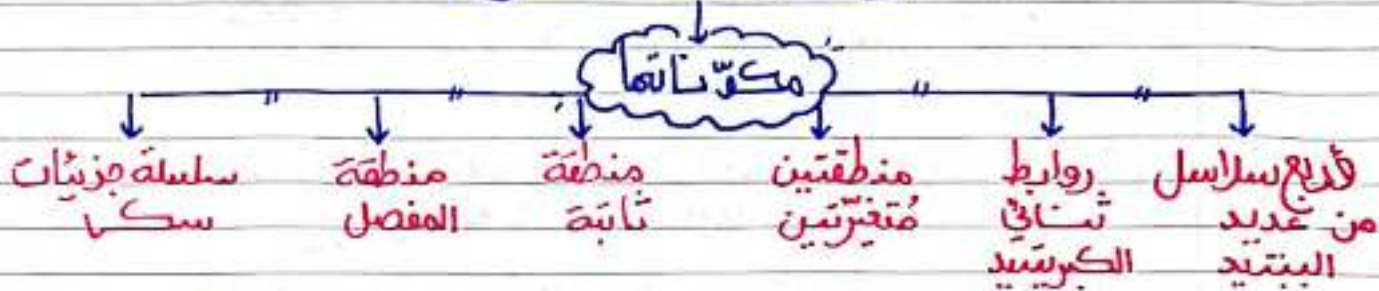 مكوّناتها
أربع سلاسل
من عديد
الببتيد
روابط
ثنائي
الكبريتيد
منطقتين
مُتغيّرتين
منطقة
ثابتة
منطقة
المفصل
سلسلة جزيئات
سكر